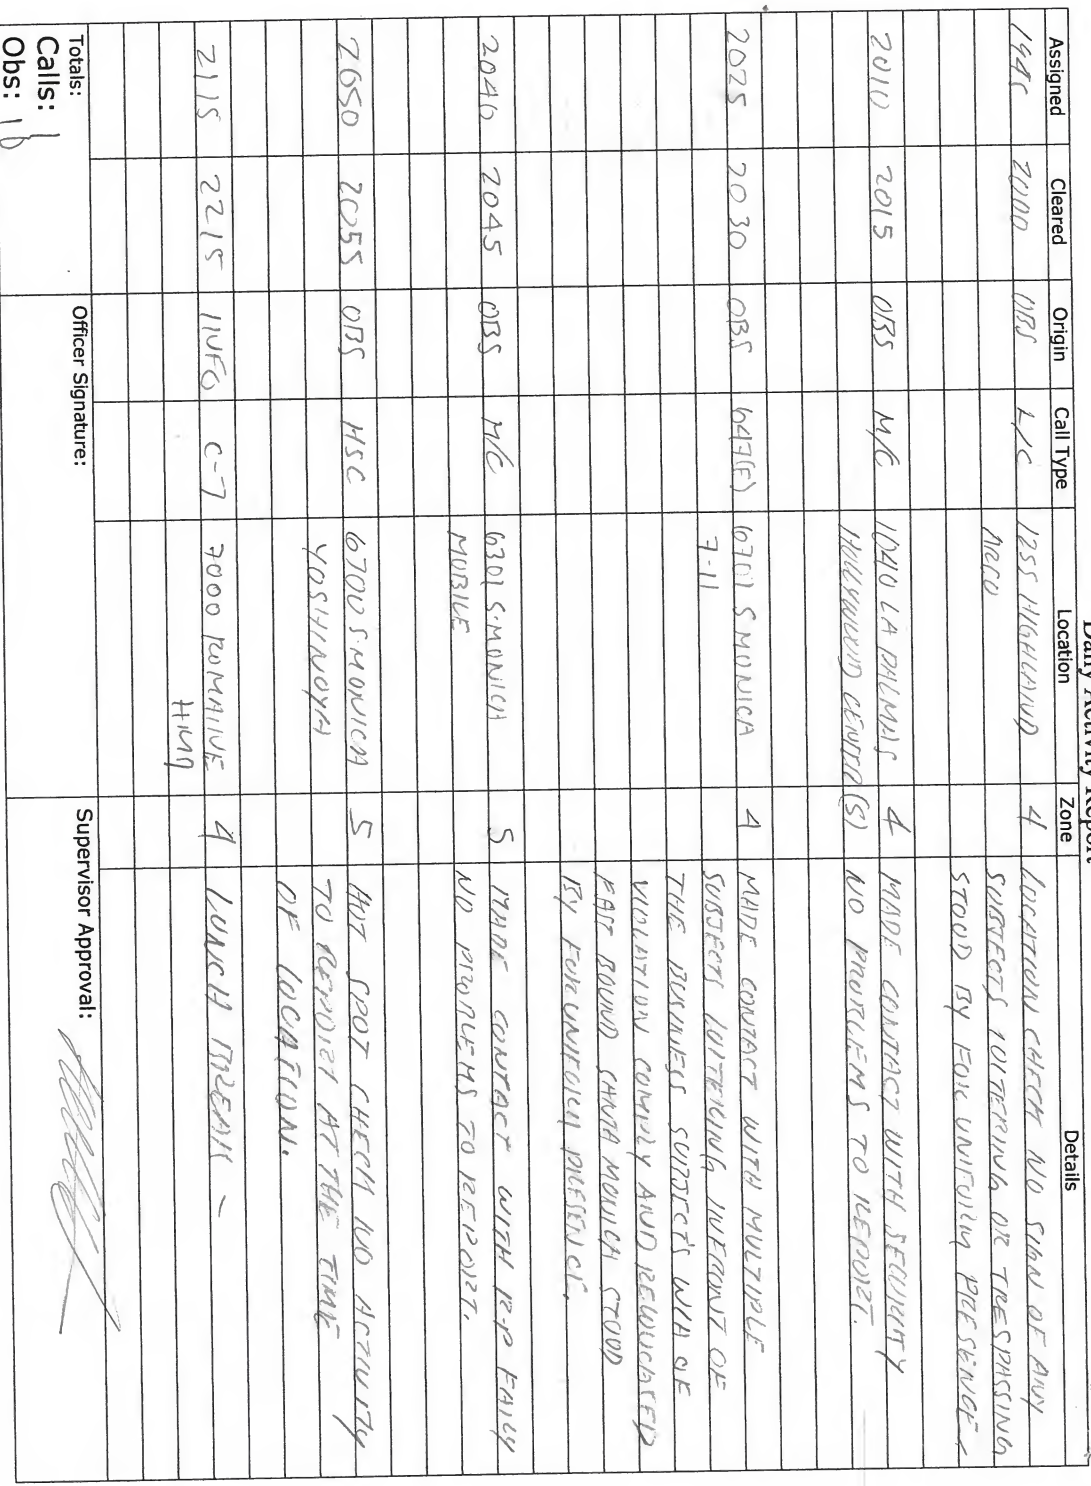 Daily Activity Report
Assigned Cleared Origin Call Type Location Zone Details
1945 2000 OBS L/C 1255 HIGHLAND 4 LOCATION CHECK NO SIGN OF ANY
ARCO SUBJECTS LOITERING OR TRESPASSING
STOOD BY FOR UNIFORM PRESENCE.
2010 2015 OBS M/C 1040 LA PALMAS 4 MADE CONTACT WITH SECURITY
HOLLYWOOD CENTER (S) NO PROBLEMS TO REPORT.
2025 2030 OBS 647(E) 6701 S MONICA 4 MADE CONTACT WITH MULTIPLE
7-11 SUBJECTS LOITERING INFRONT OF
THE BUSINESS SUBJECTS W/A OF
VIOLATION COMPLY AND RELOCATED
EAST BOUND SANTA MONICA STOOD
BY FOR UNIFORM PRESENCE.
2040 2045 OBS M/C 6301 S. MONICA 5 MADE CONTACT WITH R-P
MOBILE NO PROBLEMS TO REPORT.
2050 2055 OBS HSC 6700 S. MONICA 5 HOT SPOT CHECK NO ACTIVITY
YOSHINOYA TO REPORT AT THE TIME
OF LOCATION.
2115 2215 INFO C-7 7000 ROMAINE 4 LUNCH BREAK -
HMQ
Totals: Officer Signature: Supervisor Approval:
Calls: 1
Obs: 16